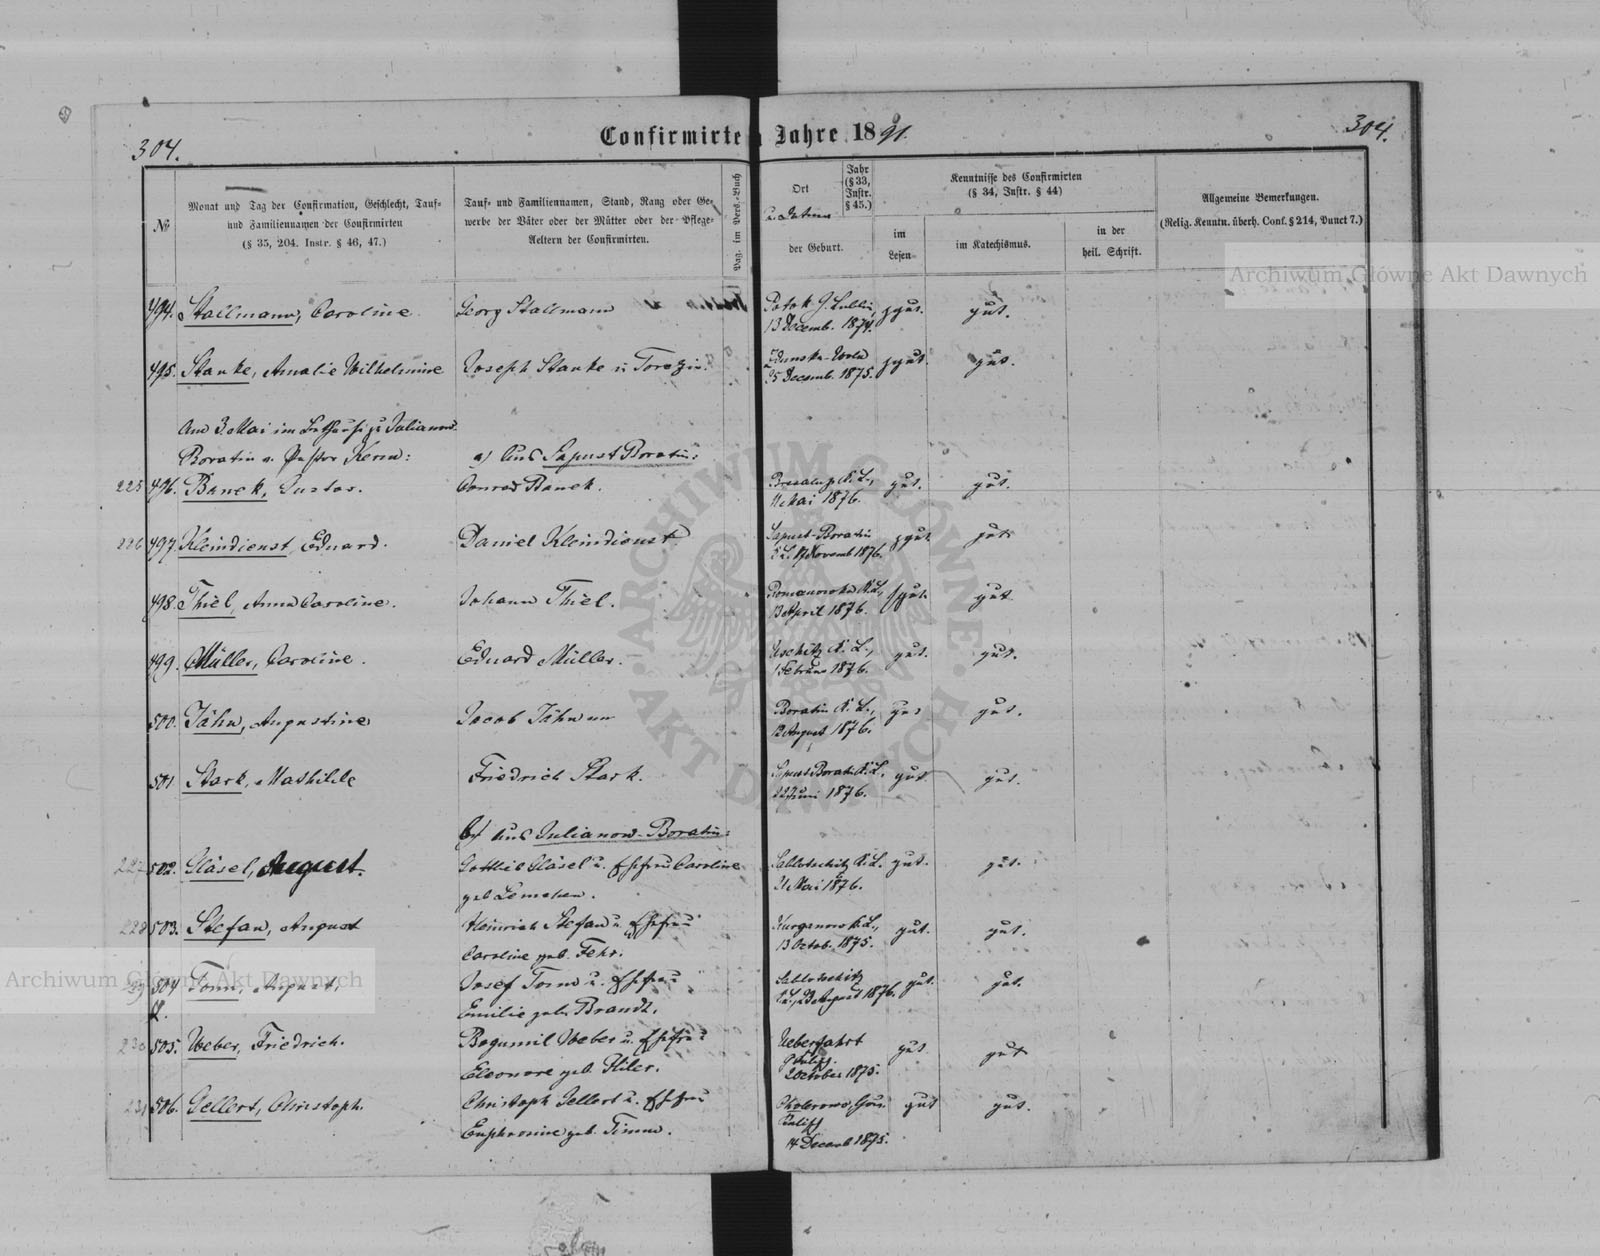 304.
Confirmirte
n Jahre 1891.
304.
№
Monat und Tag der Confirmation, Geschlecht, Tauf-
und Familiennamen der Confirmirten
(§ 35, 204. Instr. § 46, 47.)
Tauf- und Familiennamen, Stand, Rang oder Ge-
werbe der Väter oder der Mütter oder der Pflege-
Aeltern der Confirmirten.
Pag. im Pers.-Buch
Ort
u. Datum
der Geburt.
Jahr
(§ 33,
Instr.
§ 45.)
Kenntnisse des Confirmirten
(§ 34, Instr. § 44)
im
Lesen
im Katechismus.
in der
heil. Schrift.
Allgemeine Bemerkungen.
(Relig. Kenntn. überh. Conf. § 214, Punct 7.)
494. Stallmann, Caroline
Georg Stallmann
13 Decemb. 1874.
gut.
495. Stanke, Amalie Wilhelmine
Joseph Stanke u.
Zdunska-Wola
25 Decemb. 1875.
gut.
Am 3. Mai im Bethause zu Julianow-
Boratin v. Pastor Kern:
a) Aus Sapust Boratin:
225 496. Banek, Gustav.
Conrad Banek.
11 Mai 1876.
gut.
gut.
226 497. Kleindienst, Eduard.
Daniel Kleindienst
Sapust-Boratin
Novemb 1876.
gut
498. Thiel, Anna Caroline.
Johann Thiel.
Romanowka K. L.,
13 April 1876.
gut
499. Müller, Caroline.
Eduard Müller.
K. L.,
1 Februar 1876.
gut.
gut.
500. Jähn, Augustine
Jacob Jähn
Boratin K. L.,
12 August 1876.
gut
gut.
501 Stark, Mathilde
Friedrich Stark.
Sapust Boratin K. L.
22 Juni 1876.
gut
gut.
b) Aus Julianow-Boratin:
227 502. Gläsel, August.
Gottlieb Gläsel u. Ehefrau Caroline
geb
K. L.
21 Mai 1876.
gut.
gut.
228 503. Stefan, August
Heinrich Stefan u. Ehefrau
Caroline geb. Fehr.
Kurganow K. L.,
13 Octob. 1875.
gut.
gut.
229 504 Tonn, August,
Josef Tonn u. Ehefrau
Emilie geb. Brandt.
23 August 1876.
gut.
gut.
230 505. Weber, Friedrich.
Bogumil Weber u. Ehefrau
Eleonore geb. Hiler.
Ueberfahrt
G. Kalisch.
2 October 1875.
gut
gut
231 506. Gellert, Christoph.
Christoph Gellert u. Ehefrau
Euphrosine geb. Timm.
Gouv.
Kalisch
14 Decemb 1875.
gut
gut.
Archiwum Główne Akt Dawnych
Archiwum Główne Akt Dawnych
ARCHIWUM GŁÓWNE AKT DAWNYCH